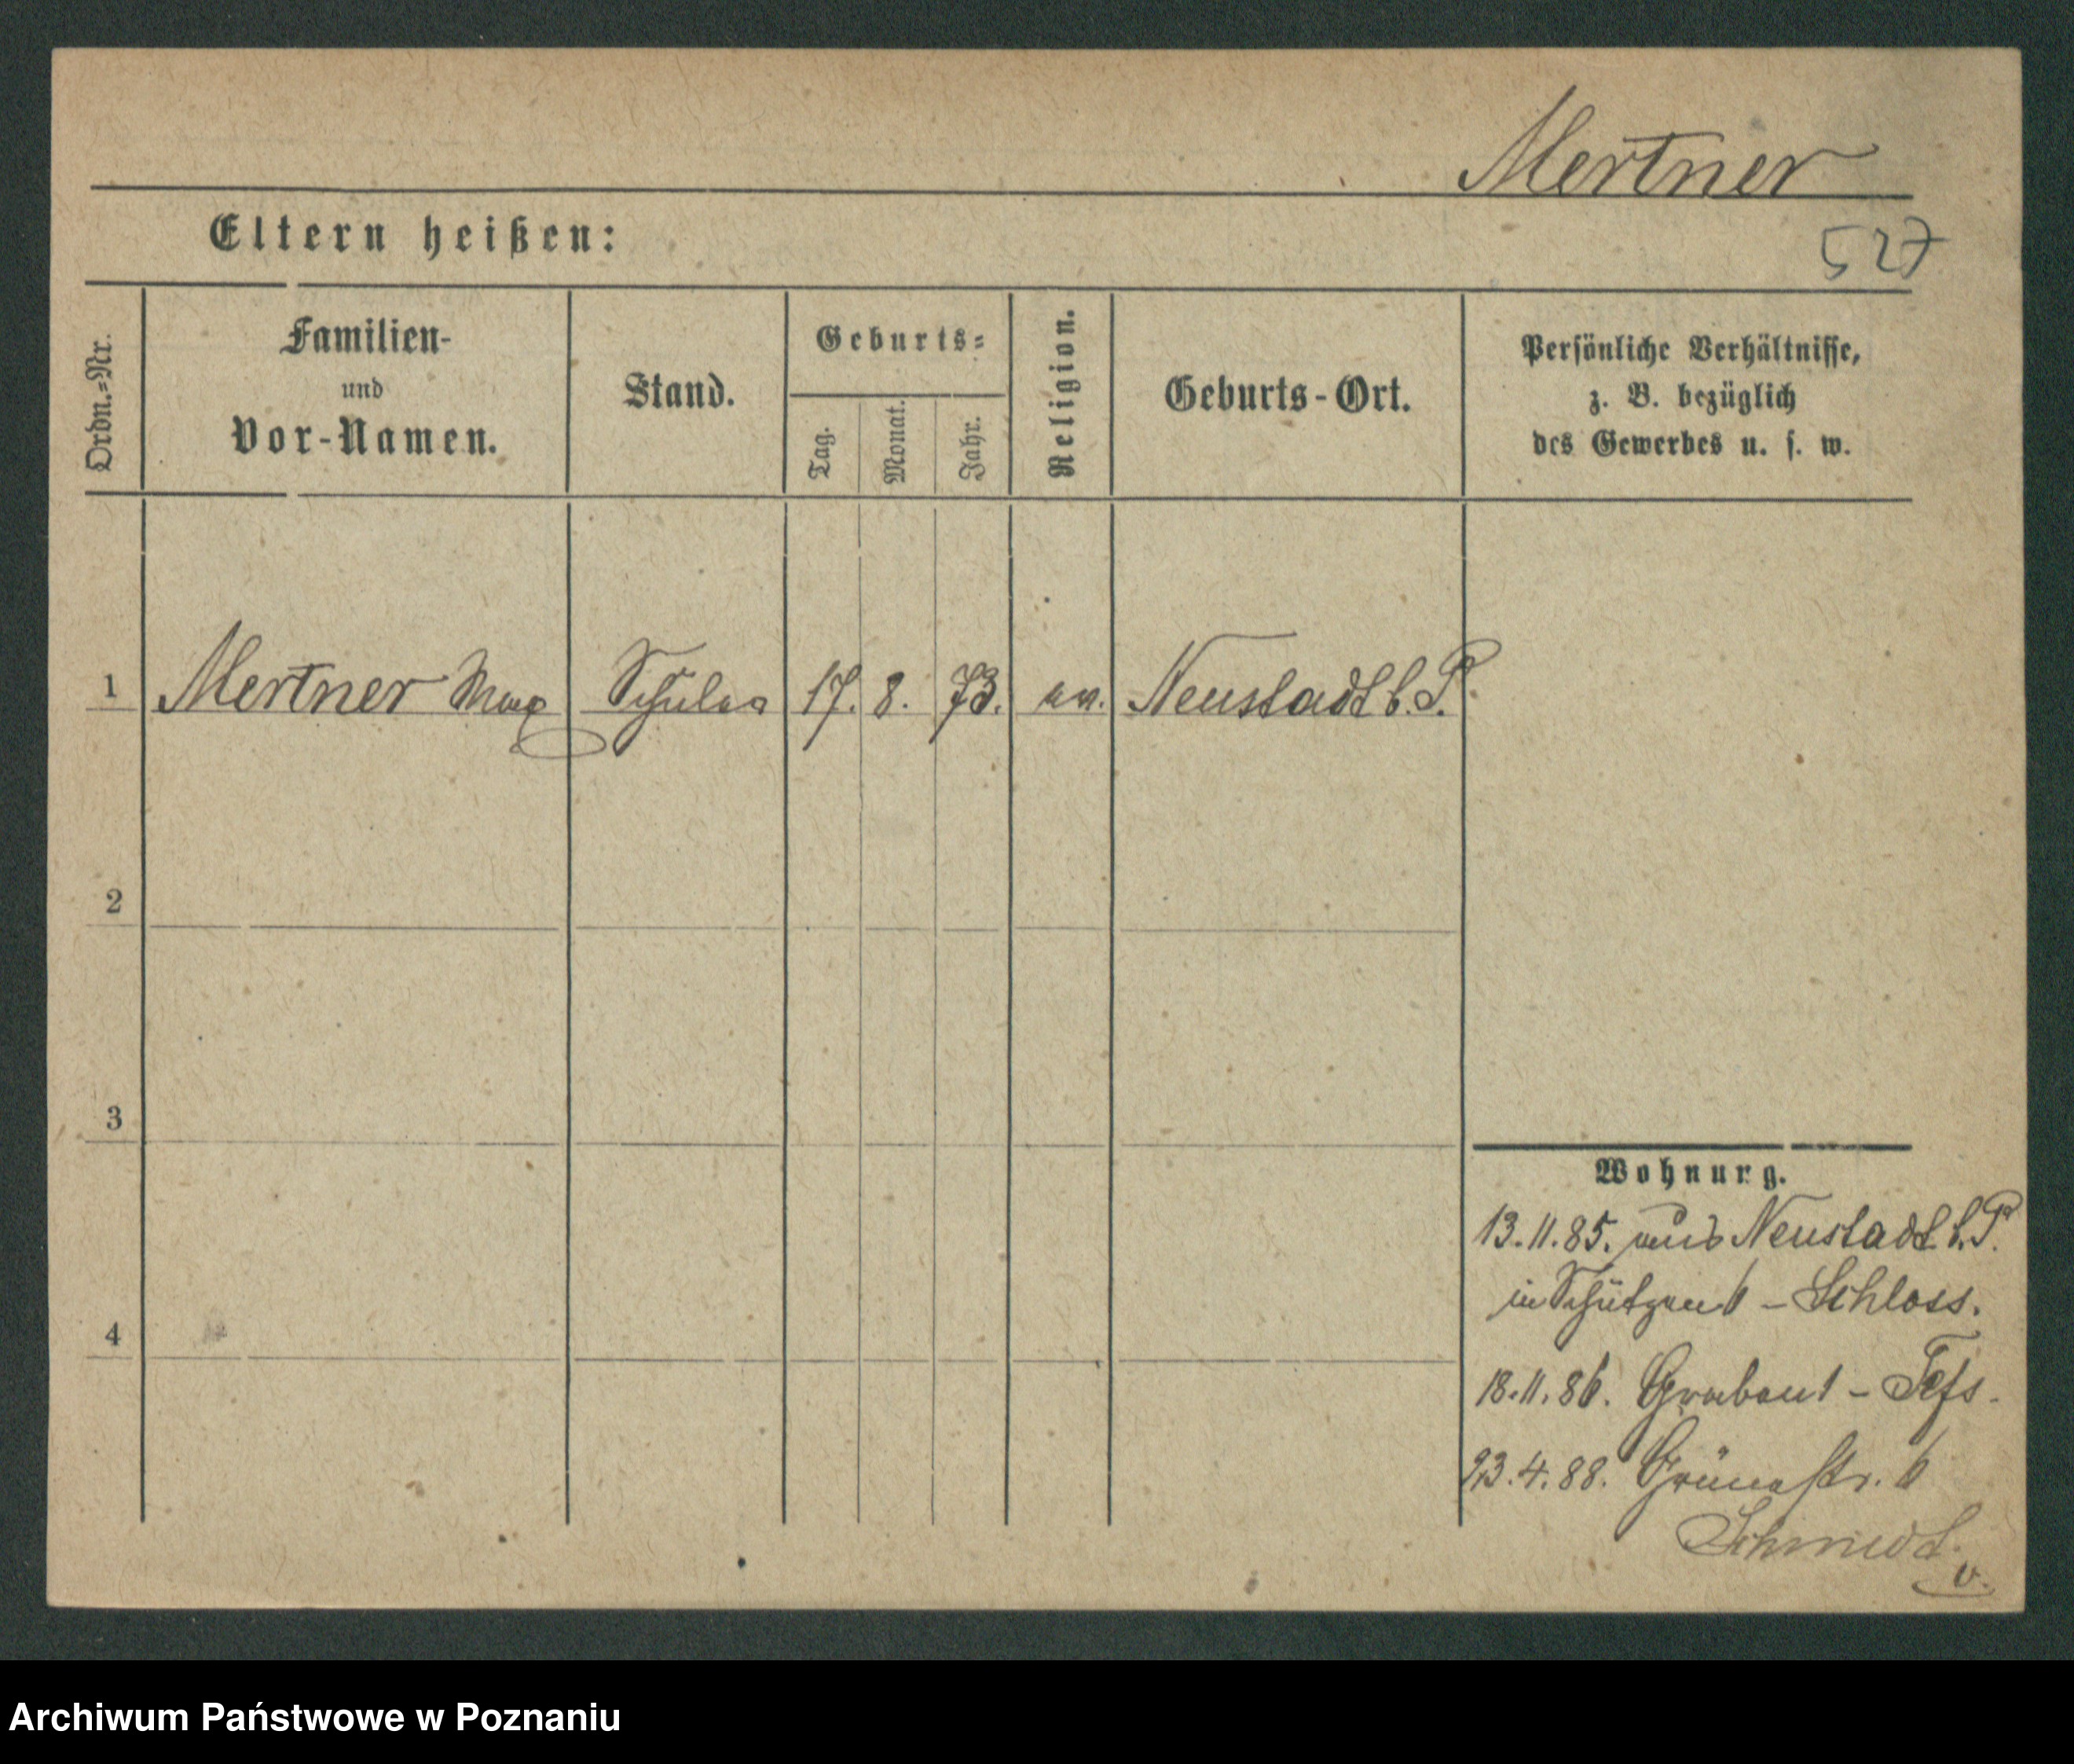 Mertner
Eltern heißen:
527
Ordn.=Nr.
Familien-
und
Vor-Namen.
Stand.
Geburts=
Tag.
Monat.
Jahr.
Religion.
Geburts-Ort.
Persönliche Verhältnisse,
z. B. bezüglich
des Gewerbes u. s. w.
1 Mertner Max Schüler 17. 8. 73. ev. Neustadt b. P.
2
3
4
Wohnung.
13.11.85. aus Neustadt b. P.
in Schützen 6 - Schloss.
18.11.86. Graben 1 -
23.4.88. Grünestr. 6
Schmidt.
v.